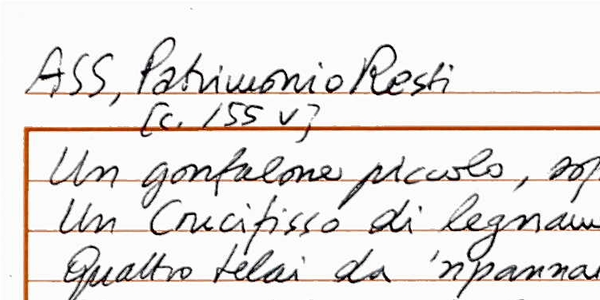 ASS, Patrimonio Resti
[c. 155 v]
Un gonfalone piccolo,
Un Crocifisso di
Quattro telai da